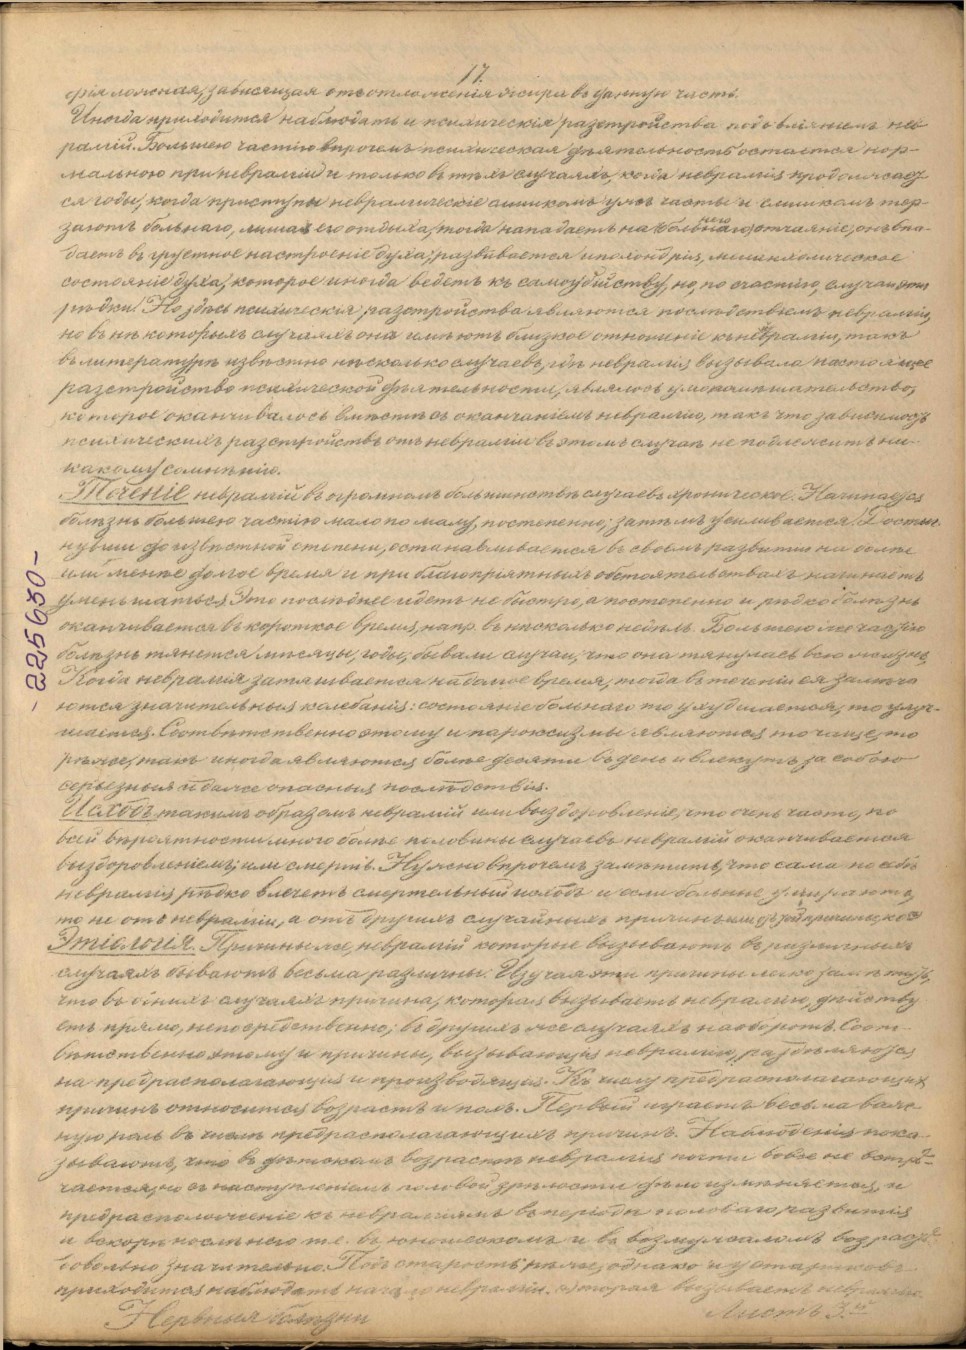 17.
фия ложная, зависящая отъ отложенія жира въ данную часть.
Иногда приходится наблюдать и психическія разстройства подъ вліяніемъ нев-
ралгій. Большею частію впрочемъ психическая дѣятельность остается нор-
мальною при невралгіи и только въ тѣхъ случаяхъ, когда невралгія продолжает
ся годы, когда приступы невралгическіе слишкомъ ужъ часты и слишкомъ тер-
заютъ больнаго, лишая его отдыха, тогда нападаетъ на него отчаяніе, онъ впа-
даетъ въ грустное настроеніе духа, развивается ипохондрія, меланхолическое
состояніе духа, которое иногда ведетъ къ самоубійству, но, по счастію, случаи эти
рѣдки. Но здѣсь психическія разстройства являются послѣдствіемъ невралгіи,
но въ нѣкоторыхъ случаяхъ онѣ имѣютъ близкое отношеніе къ невралгіи, такъ
въ литературѣ извѣстно нѣсколько случаевъ, гдѣ невралгія вызывала настоящее
разстройство психической дѣятельности, являлось умопомѣшательство,
которое оканчивалось вмѣстѣ съ окончаніемъ невралгіи, такъ что зависимость
психическихъ разстройствъ отъ невралгіи въ этомъ случаѣ не подлежитъ ни-
какому сомнѣнію.
Теченіе невралгій въ огромномъ большинствѣ случаевъ хроническое. Начинается
болѣзнь большею частію мало по малу, постепенно, затѣмъ усиливается. Достиг
нувши до извѣстной степени, останавливается въ своемъ развитіи на болѣе
или менѣе долгое время и при благопріятныхъ обстоятельствахъ начинаетъ
уменьшаться. Это послѣднее идетъ не быстро, а постепенно и рѣдко болѣзнь
оканчивается въ короткое время, напр. въ нѣсколько недѣль. Большею же частію
болѣзнь тянется мѣсяцы, годы, бывали случаи, что она тянулась всю жизнь.
Когда невралгія затягивается на долгое время, тогда въ теченіи ея замѣча
ются значительныя колебанія: состояніе больнаго то ухудшается, то улуч-
шается. Соотвѣтственно этому и пароксизмы являются то чаще, то
рѣже, такъ иногда являются болѣе десяти въ день и влекутъ за собою
серьезныя и даже опасныя послѣдствія.
Исходъ такимъ образомъ невралгій или выздоровленіе, что очень часто, по
всей вѣроятности много болѣе половины случаевъ невралгій оканчивается
выздоровленіемъ, или смерть. Нужно впрочемъ замѣтить, что сама по себѣ
невралгія рѣдко влечетъ смертельный исходъ и если больные умираютъ,
то не отъ невралгіи, а отъ другихъ случайныхъ причинъ или
Этіологія. Причины же, невралгій которые вызываютъ въ различныхъ
случаяхъ бываютъ весьма различны. Изучая эти причины легко замѣтить,
что въ однихъ случаяхъ причина, которая вызываетъ невралгію, дѣйству
етъ прямо, непосредственно, въ другихъ же случаяхъ наоборотъ. Соот-
вѣтственно этому и причины, вызывающія невралгіи, раздѣляются
на предрасполагающія и производящія. Къ числу предрасполагающихъ
причинъ относится возрастъ и полъ. Первый играетъ весьма важ-
ную роль въ числѣ предрасполагающихъ причинъ. Наблюденія пока-
зываютъ, что въ дѣтскомъ возрастѣ невралгія почти вовсе не встрѣ-
чается, но съ наступленіемъ половой зрѣлости дѣло измѣняется, и
предрасположеніе къ невралгіямъ въ періодъ половаго развитія
и вскорѣ послѣ него т.е. въ юношескомъ и въ возмужаломъ возрастѣ
довольно значительно. Подъ старость рѣже, однако и у стариковъ
приходится наблюдать начало невралгіи. вызываетъ невралгію
Нервныя болѣзни
Листъ 3й
-225650-